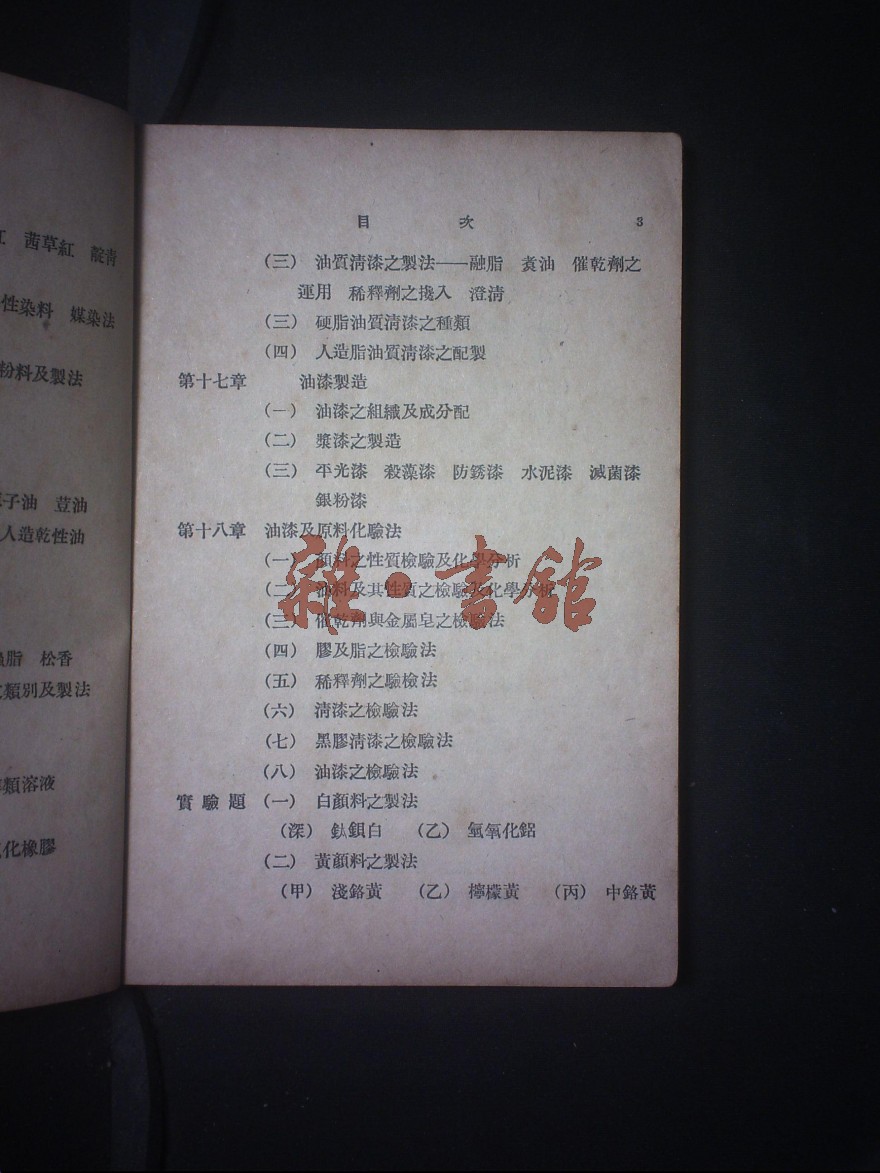 目 次 3
(三) 油質清漆之製法——融脂 袁油 催乾劑之
運用 稀釋劑之攙入 澄清
(三) 硬脂油質清漆之種類
(四) 人造脂油質清漆之配製
第十七章 油漆製造
(一) 油漆之組織及成分配
(二) 漿漆之製造
(三) 平光漆 殺藻漆 防銹漆 水泥漆 滅菌漆
銀粉漆
第十八章 油漆及原料化驗法
(一) 顏料之性質檢驗及化學分析
(二) 油料及其性質之檢驗及化學分析
(三) 催乾劑與金屬皂之檢驗法
(四) 膠及脂之檢驗法
(五) 稀釋劑之驗檢法
(六) 清漆之檢驗法
(七) 黑膠清漆之檢驗法
(八) 油漆之檢驗法
實驗題 (一) 白顏料之製法
(深) 鈦鋇白 (乙) 氫氧化鋁
(二) 黃顏料之製法
(甲) 淺鉻黃 (乙) 檸檬黃 (丙) 中鉻黃
茜草紅 靛青
性染料 媒染法
粉料及製法
子油 荳油
人造乾性油
脂 松香
類別及製法
類溶液
化橡膠
雜·書館